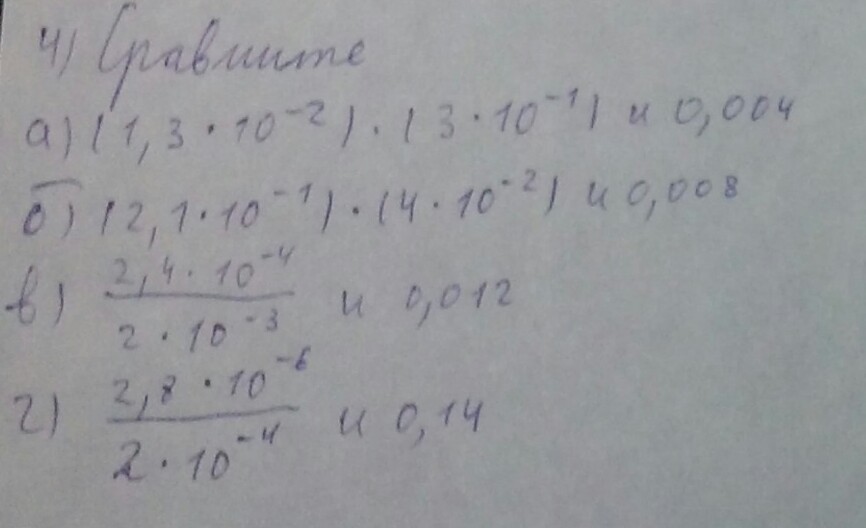 4) Сравните
а) (1,3 · 10⁻²) · (3 · 10⁻¹) и 0,004
б) (2,1 · 10⁻¹) · (4 · 10⁻²) и 0,008
в) \frac{2,4 · 10⁻⁴}{2 · 10⁻³} и 0,012
г) \frac{2,8 · 10⁻⁶}{2 · 10⁻⁴} и 0,14